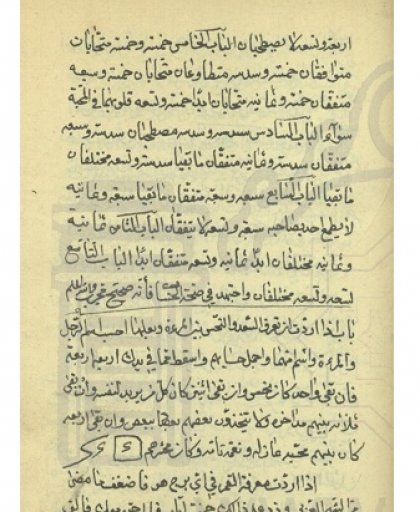 اربعة وتسعه لا يصطلحان الباب الخامس خمسة وخمسة متحابان
متوافقان خمسة وسدسه متطاوعان متحابان خمسة وسبعه
متفقان خمسة وثمانيه متحابان ابدا خمسة وتسعه قلوبهما في المحبة
سواء الباب السادس سدسه وسدسه مصطلحان سدسة وسبعه
متفقان سدسة وثمانيه متفقان ما بقيا سدسة وتسعه مختلفان
ما بقيا الباب السابع سبعه وسبعة متفقان ما بقيا سبعة وثمانيه
لا يطمع احد بصاحبه سبعة وتسعه لا يتفقان الباب الثامن ثمانيه
وثمانيه مختلفان ابدا ثمانيه وتسعه متفقان ابدا الباب التاسع
تسعه وتسعه مختلفان واجتهد في صحة الحساب فأنه صحيح مجرب والله اعلم
باب اذا اردت ان تعرف السعد والنحس بين المرءة وبعلها احسب اسم الرجل
والمرءة واسم امهما واجمل حسابهم واسقطهما في يدك اربعه اربعة
فان بقى واحد كان نحس وان بقى اثنين كان كل يريد لنفسه وان بقى
ثلاثه بينهم مداخره ولا يتخذون بعضهم بعضا ببعض وان بقى اربعه
كان بينهم محبه ونعمة تامة وكان مخرجهم ٤
اذا اردت معرفة القمر في اي برج هو فاضعف ما مضى